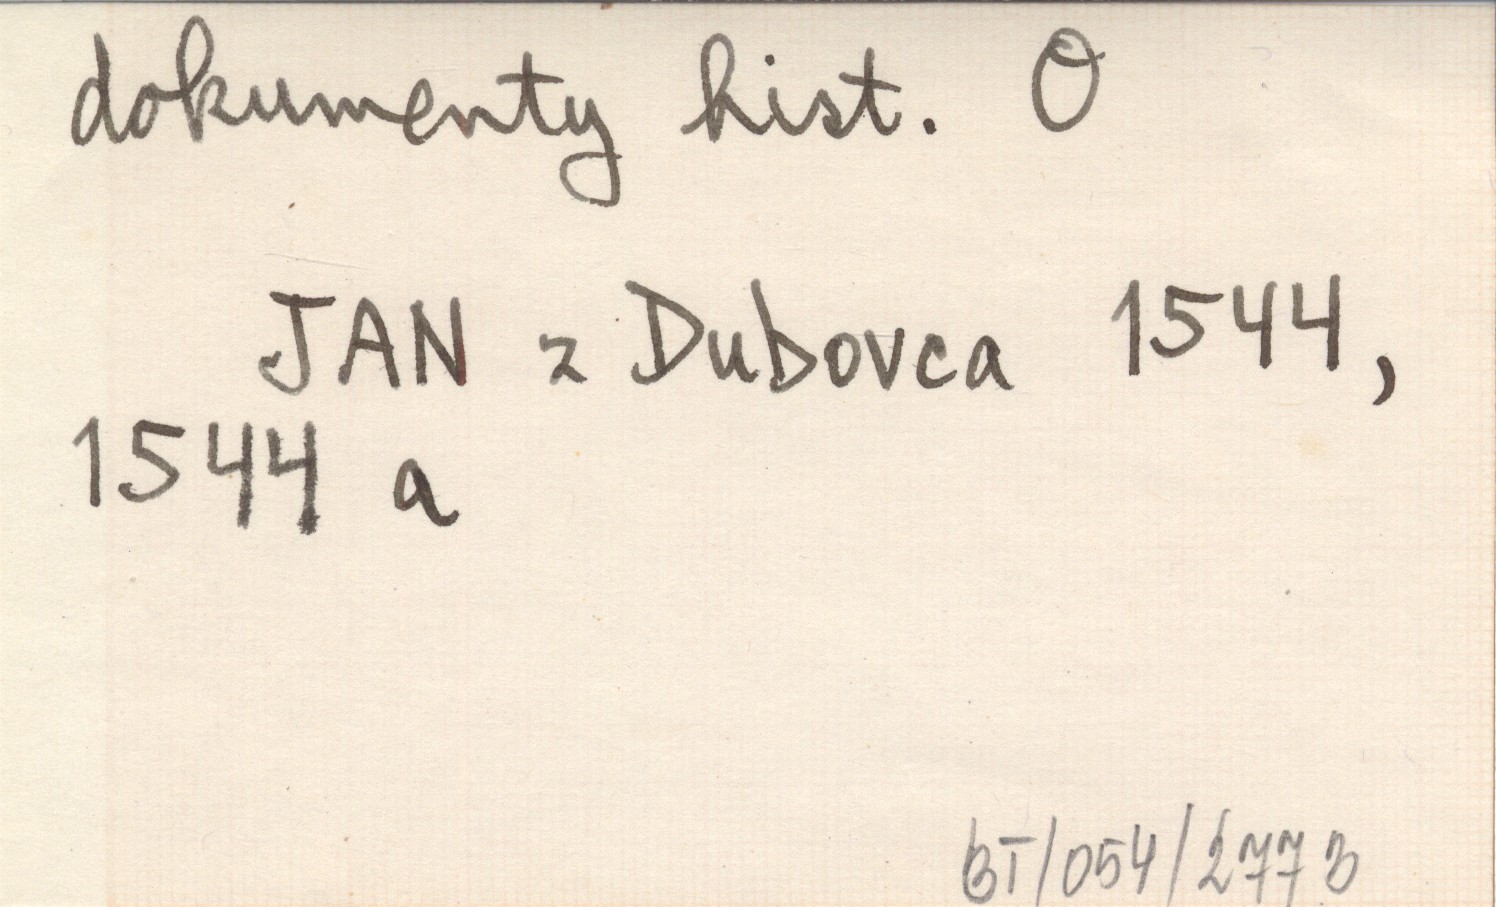 dokumenty hist. O
JAN z Dubovca 1544,
1544 a
BT/054/2773